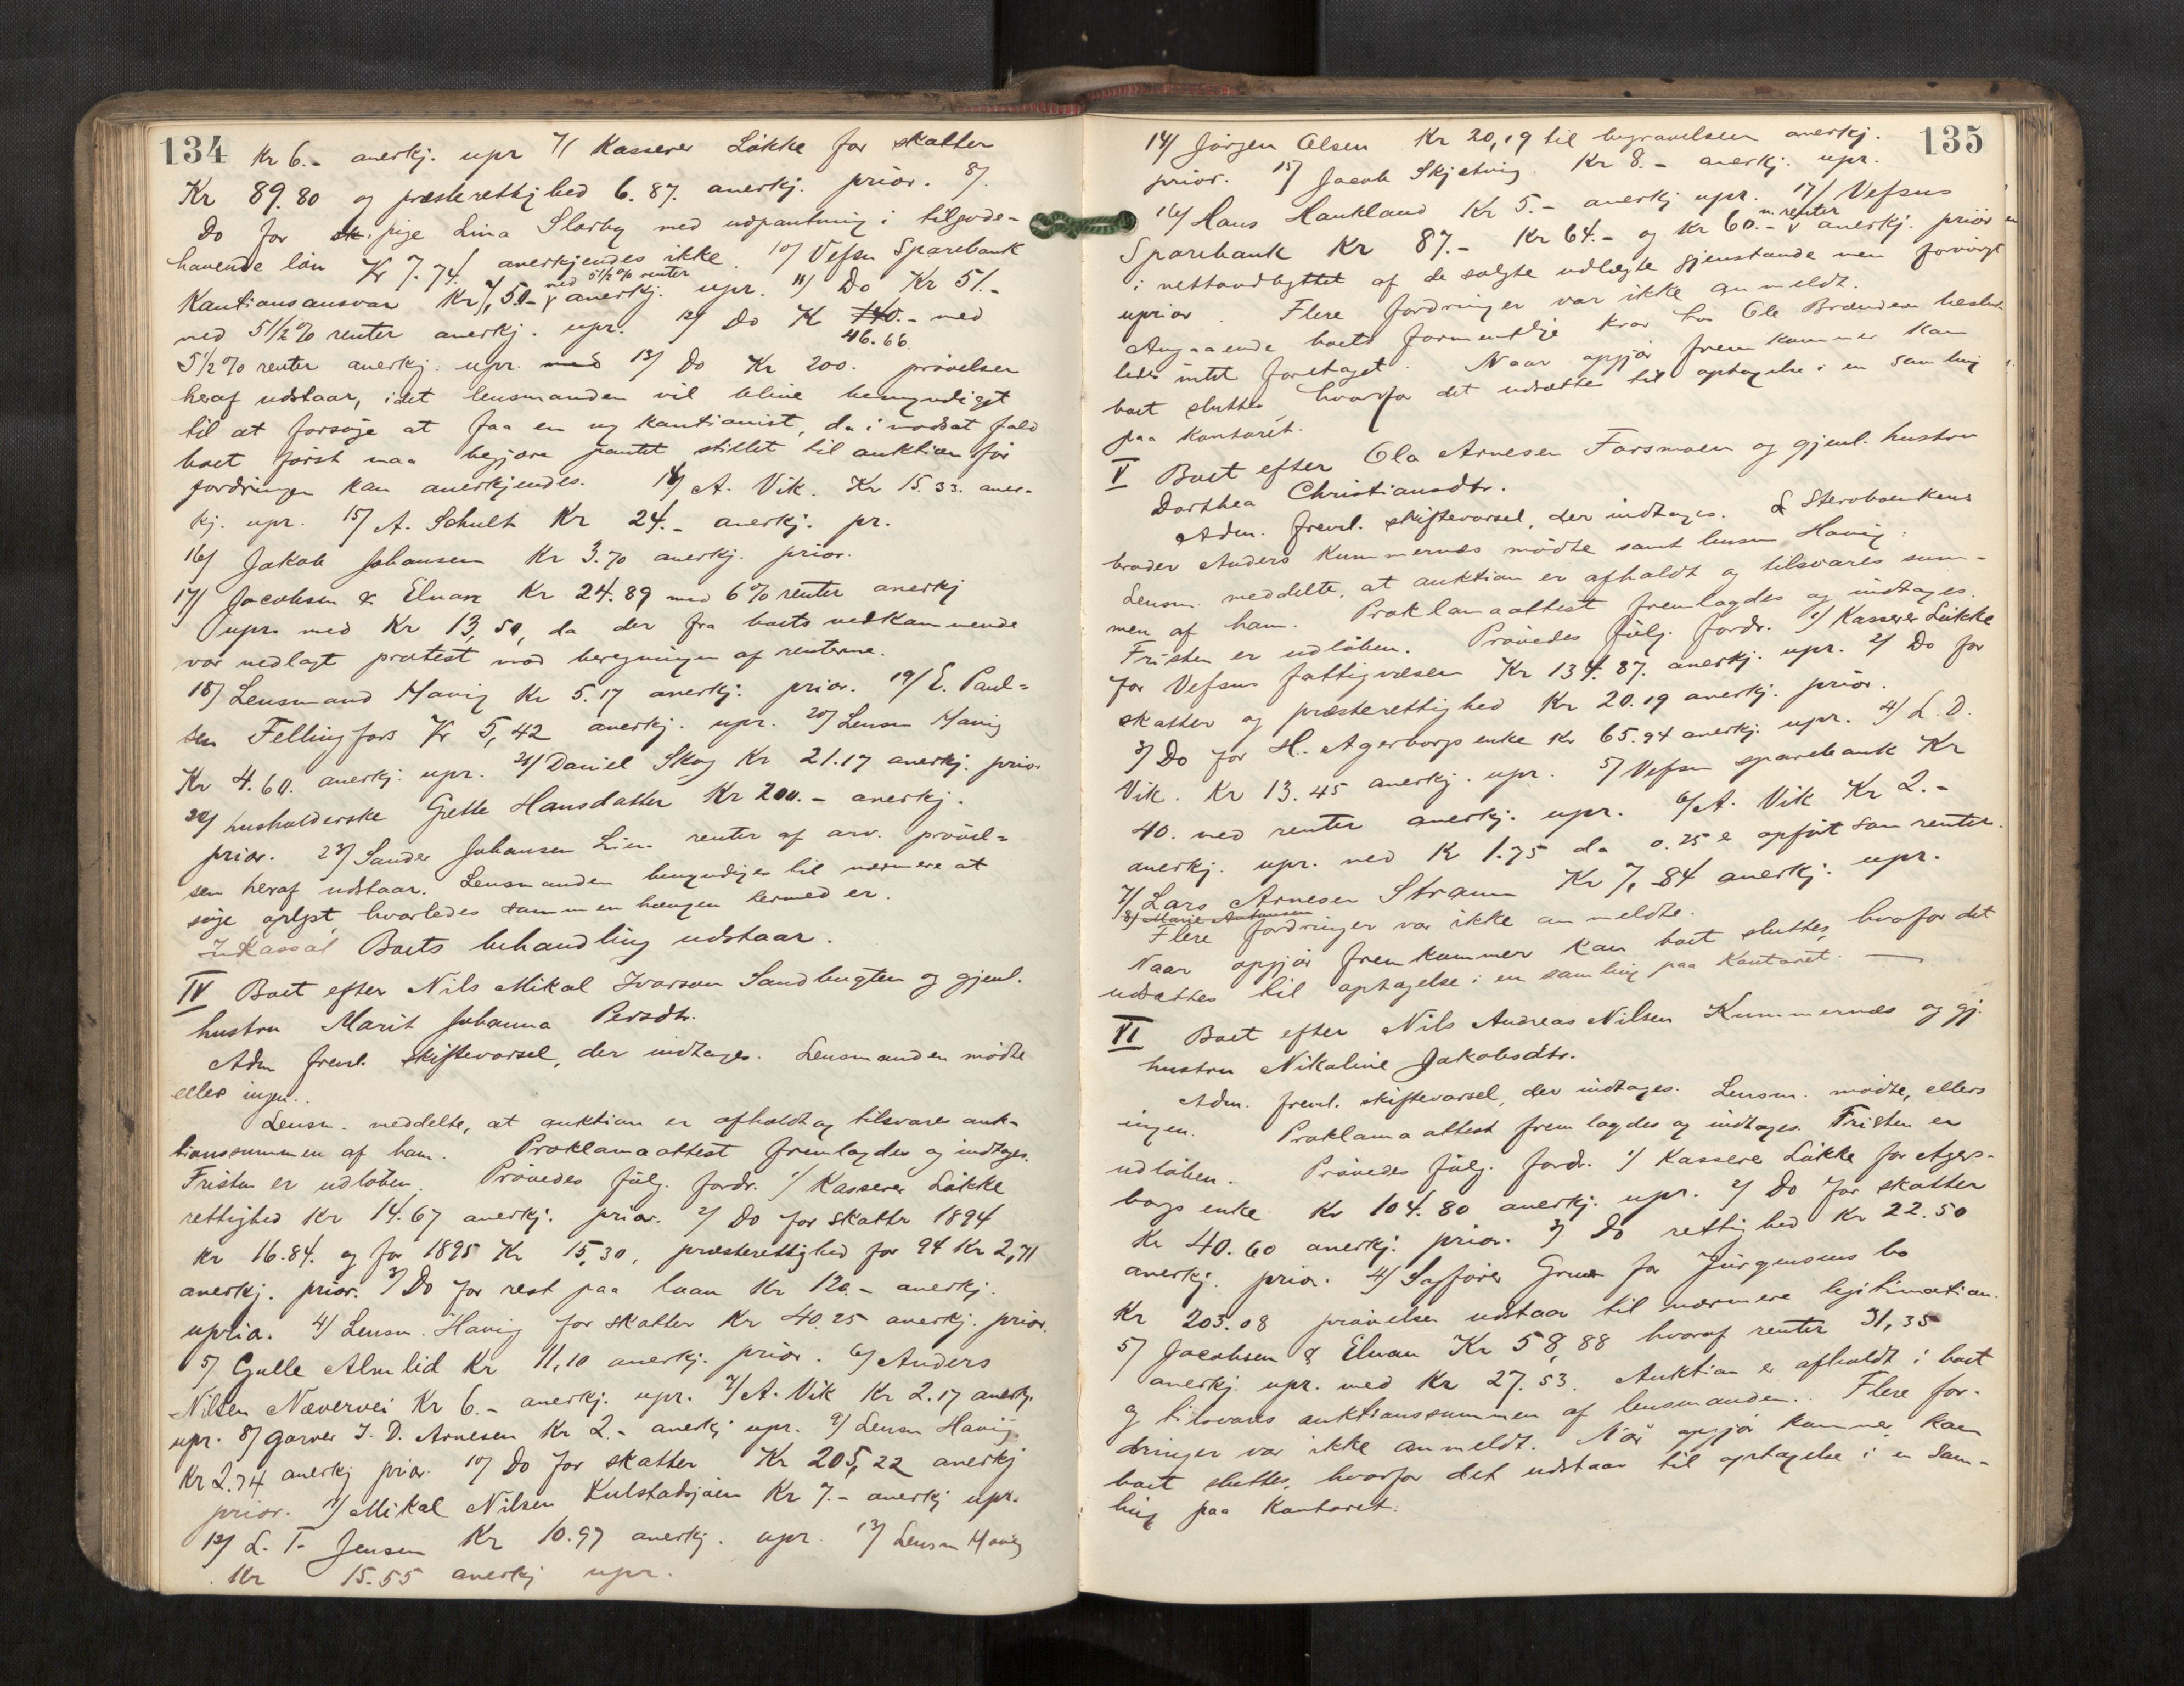 134
Kr 6.- anerkj. upr 7/ Kasserer Løkke for skatter
Kr 89.80 og præsterettighed 6.87. anerkj. prior. 8/.
Do for pige Lina med udpantning i tilgode-
havende løn Kr 7.74. anerkjendes ikke. 10/ Vefsn Sparebank
Kautionsansvar Kr 7,50 - med 5 1/2 % renter anerkj. upr. 11/ Do Kr 51.-
med 5 1/2 % renter anerkj. upr. 12/ Do Kr 140.- med
46.66
5 1/2 % renter anerkj. upr. med 13/ Do Kr 200. prøvelsen
heraf udstaar, idet lensmanden vil blive bemyndiget
til at forsøge at faa en ny kautionist, da i modsat fald
boet først maa begjære pantet stillet til auktion før
fordringen kan anerkjendes. 14/ A. Vik. Kr 15.33. aner-
kj. upr. 15/ A. Schult Kr 24.- anerkj. pr.
16/ Jakob Johansen Kr 3.70 anerkj. prior.
17/ Jacobsen & Elnan Kr 24.89 med 6 % renter anerkj
upr. med Kr 13,50, da der fra boets vedkommende
var nedlagt protest mod beregningen af renterne.
18/ Lensmand Havig Kr 5.17 anerkj. prior. 19/ E. Paul-
sen Fellingfors Kr 5,42 anerkj. upr. 20/ Lensm Havig
Kr 4.60. anerkj. upr. 21/ Daniel Skog Kr 21.17 anerkj. prior
22/ husholderske Grette Hansdatter Kr 200.- anerkj.
prior. 23/ Sander Johansen Lien renter af arv. prøvel-
sen heraf udstaar. Lensmanden bemyndiges til nærmere at
søge oplyst hvorledes sammenhængen hermed er.
Boets behandling udstaar.
IV Boet efter Nils Mikal Ivarson Sandbugten og gjenl.
hustru Marit Johanna Persdtr.
Adm freml. skiftevarsel, der indtages. Lensmanden mødte
ellers ingen.
Lensm. meddelte, at auktion er afholdt og tilsvares auk-
tionssummen af ham. Proklamaattest fremlagdes og indtages.
Fristen er udløben. Prøvedes følg. fordr. 1/ Kasserer Løkke
rettighed Kr 14.67 anerkj. prior. 2/ Do for skatter 1894
Kr 16.84. og for 1895 Kr 15,30, præsterettighed for 94 Kr 2,71
anerkj. prior. 3/ Do for rest paa laan Kr 120.- anerkj.
uprior. 4/ Lensm. Havig for skatter Kr 40.25 anerkj. prior.
5/ Gulle Almlid Kr 11,10 anerkj. prior. 6/ Anders
Nilsen Nævervei Kr 6.- anerkj. upr. 7/ A. Vik Kr 2.17 anerkj.
upr. 8/ garver J. D. Arnesen Kr 2.- anerkj upr. 9/ Lensm Havig.
Kr 2.74 anerkj prior. 10/ Do for skatter Kr 205,22 anerkj
prior. 11/ Mikal Nilsen Kulstadsjøen Kr 7.- anerkj upr.
12/ L. T. Jensen Kr 10.97 anerkj. upr. 13/ Lensm Havig
Kr 15.55 anerkj upr.
135
14/ Jørgen Olsen Kr 20,19 til begravelsen anerkj.
prior. 15/ Jacob Skjetvig Kr 8.- anerkj. upr.
16/ Hans Haukland Kr 5.- anerkj upr. 17/ Vefsns
Sparebank Kr 87.- Kr 64.- og Kr 60.- m. renter anerkj. prior
i nettoudbyttet af de solgte udlagte gjenstande men forøvrigt
uprior. Flere fordringer var ikke anmeldt.
Angaaende boets formentlige krav hos Ole Brændsen beslut-
tedes intet foretaget. Naar opgjør fremkommer kan
boet sluttes, hvorfor det udsættes til optagelse i en samling
paa kontoret.
V Boet efter Ola Arnesen Forsmoen og gjenl. hustru
Dorthea Christiansdtr.
Adm. freml. skiftevarsel, der indtages. Stervboenkens
broder Anders Kummernæs mødte samt lensm Havig.
Lensm. meddelte, at auktion er afholdt og tilsvares sum-
men af ham. Proklamaattest fremlagdes og indtages.
Fristen er udløben. Prøvedes følg. fordr. 1/ Kasserer Løkke
for Vefsns fattigvæsen Kr 134.87. anerkj. upr. 2/ Do for
skatter og præsterettighed Kr 20.19 anerkj. prior.
3/ Do for H. Agerborgs enke Kr 65.94 anerkj. upr. 4/ L. D.
Vik. Kr 13.45 anerkj. upr. 5/ Vefsn sparebank Kr
40. med renter anerkj. upr. 6/ A. Vik Kr 2.-
anerkj. upr. med Kr 1.75 da 0.25 er opført som renter.
7/ Lars Arnesen Straum Kr 7,84 anerkj. upr.
8/ Marie
Flere fordringer var ikke anmeldte.
Naar opgjør fremkommer kan boet sluttes, hvorfor det
udsættes til optagelse i en samling paa Kontoret.
VI Boet efter Nils Andreas Nilsen Kummernæs og gj.
hustru Nikoline Jakobsdtr.
Adm. freml. skiftevarsel, der indtages. Lensm. mødte, ellers
ingen. Proklamaattest fremlagdes og indtages. Fristen er
udløben. Prøvedes følg. fordr. 1/ Kasserer Løkke for Ager-
borgs enke Kr 104.80 anerkj. upr. 2/ Do for skatter
Kr 40.60 anerkj. prior. 3/ Do rettighed Kr 22.50
anerkj. prior. 4/ Sagfører Gruer for Jürgensens bo
Kr 203.08 prøvelsen udstaar til nærmere legitimation.
5/ Jacobsen & Elnan Kr 58,88 hvoraf renter 31,35
anerkj. upr. med Kr 27.53. Auktion er afholdt i boet
og tilsvares auktionssummen af lensmanden. Flere for-
dringer var ikke anmeldt. Når opgjør kommer kan
boet sluttes, hvorfor det udstaar til optagelse i en sam-
ling paa Kontoret.